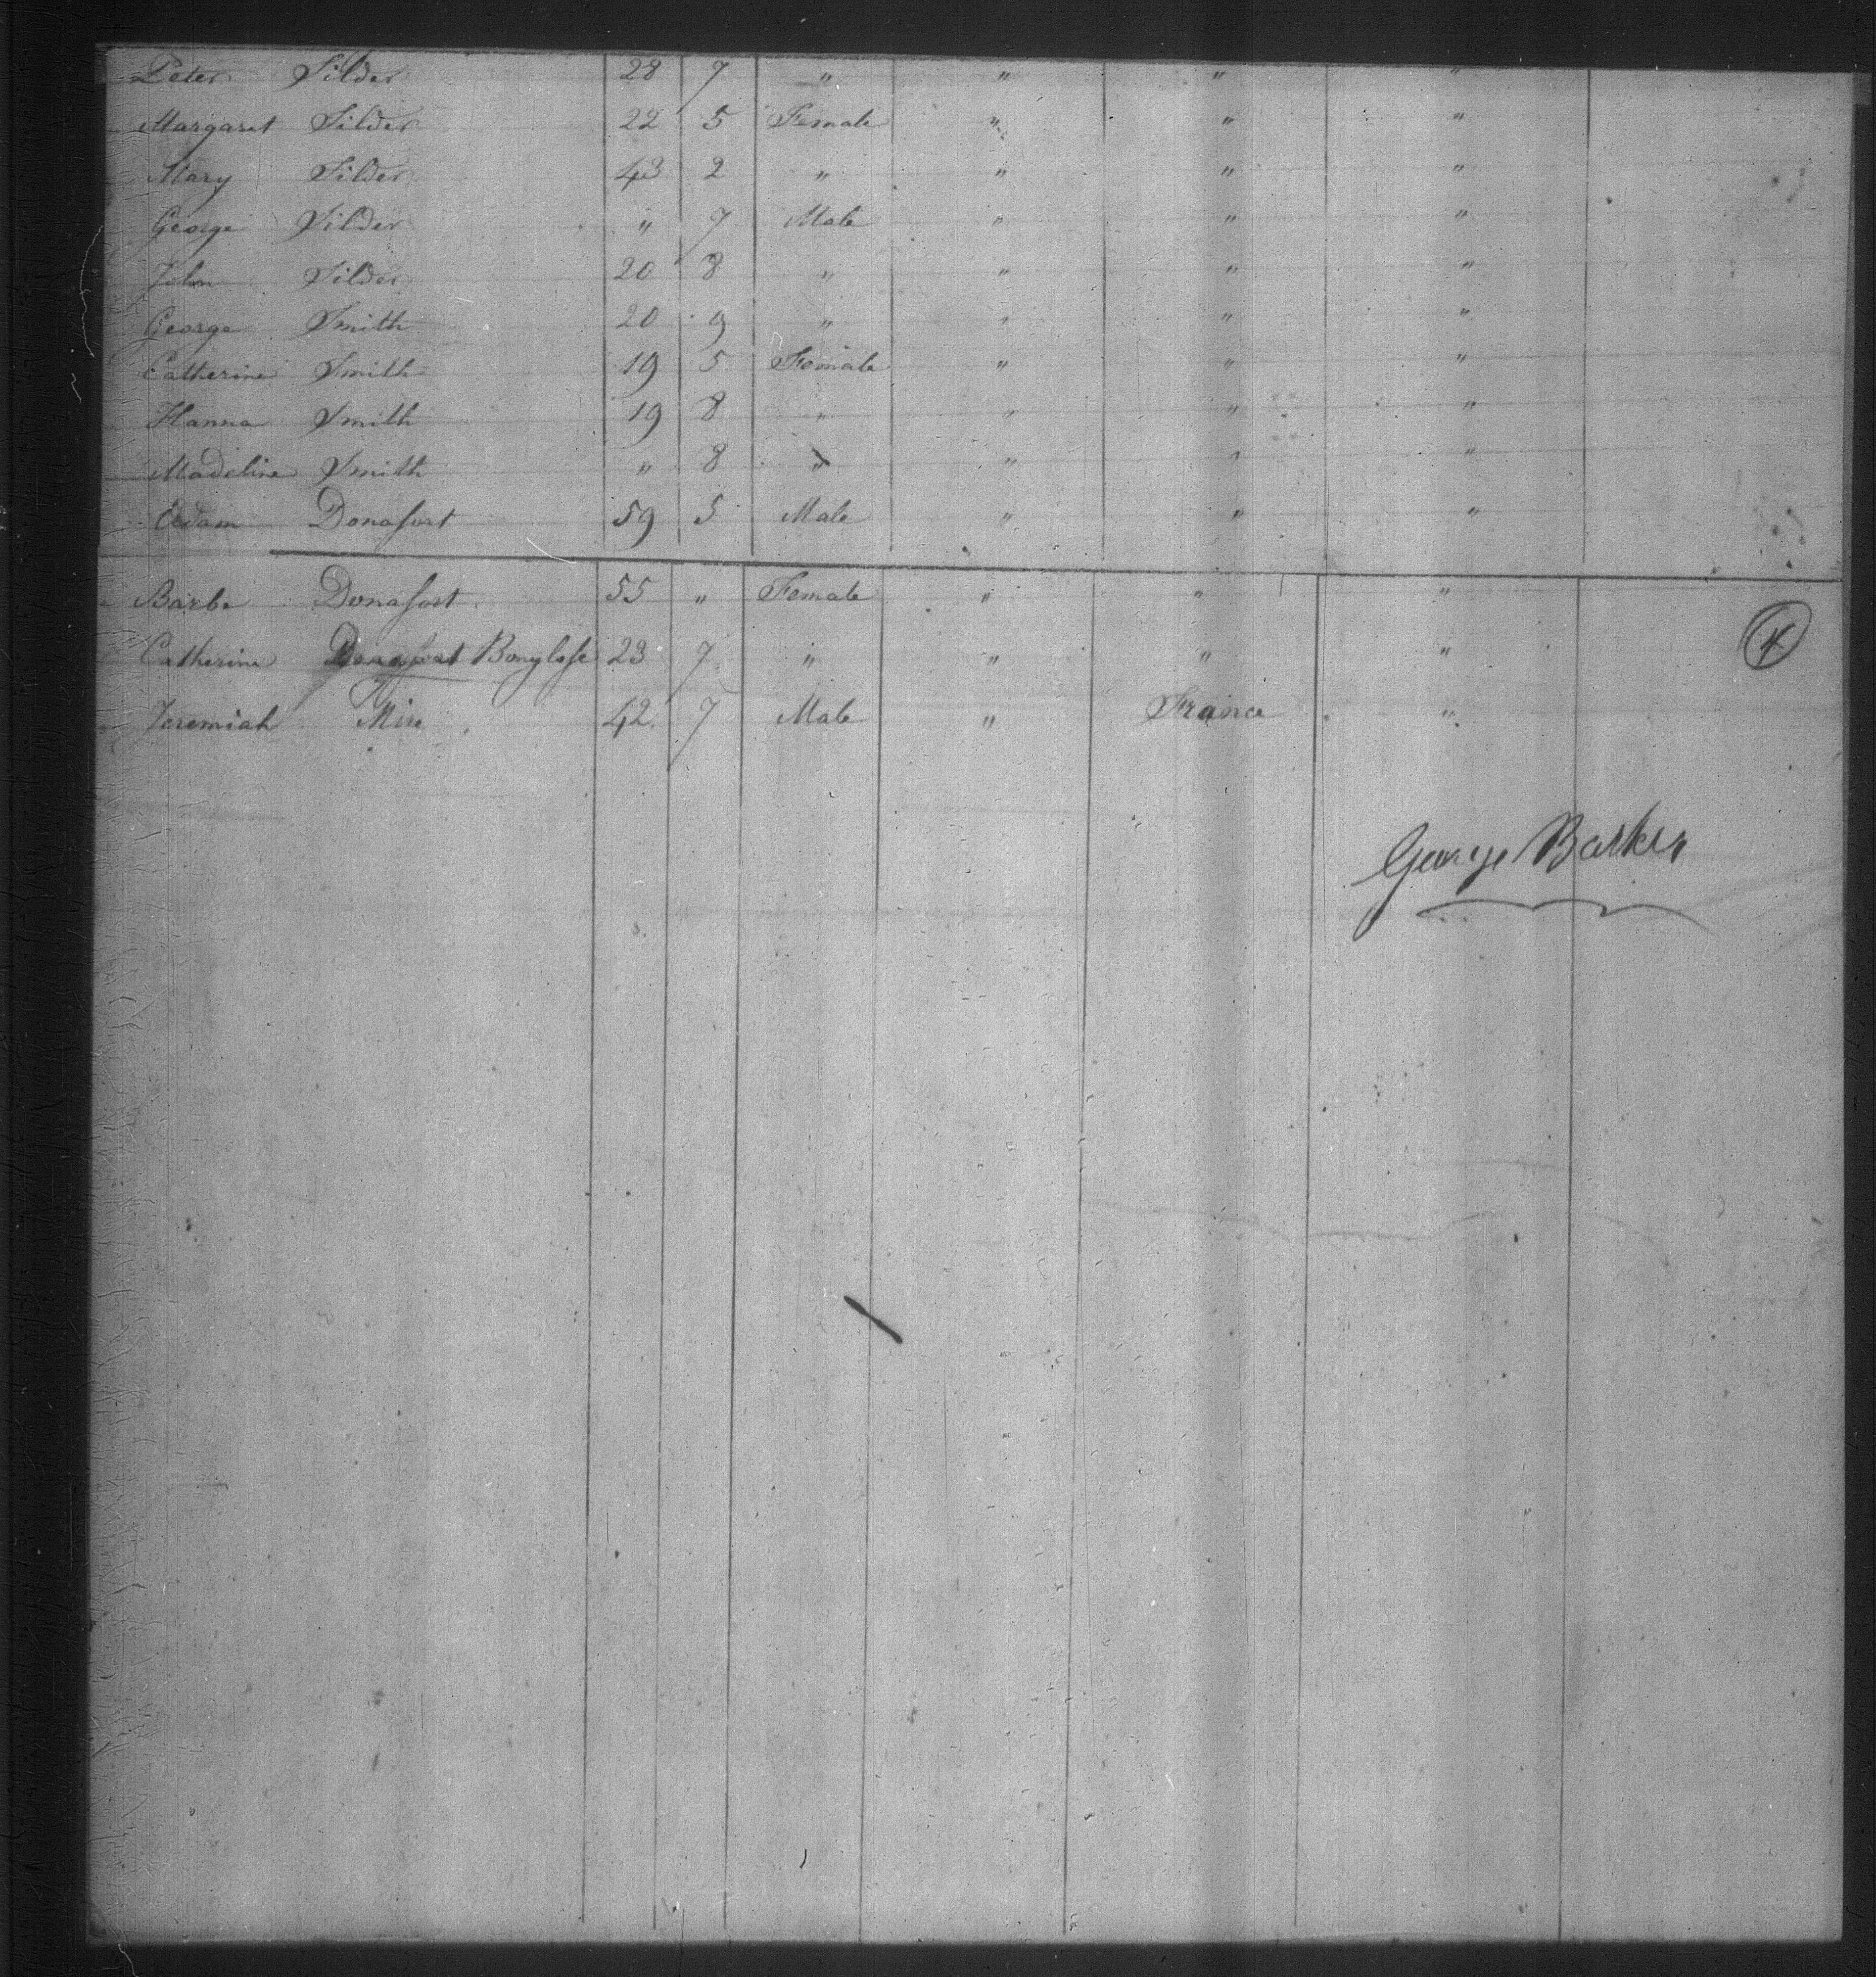 Peter Silder 28 7 " " " "
Margaret Silder 22 5 Female " " "
Mary Silder 43 2 " " " "
George Silder " 7 Male " " "
John Silder 20 8 " " " "
George Smith 20 9 " " " "
Catherine Smith 19 5 Female " " "
Hanna Smith 19 8 " " " "
Madeline Smith " 8 " " " "
Adam Donafort 59 5 Male " " "
Barbe Donafort 55 " Female " " "
Catherine Donafort 23 7 " " " "
Jeremiah Mire 42 7 Male " France "
George Barker